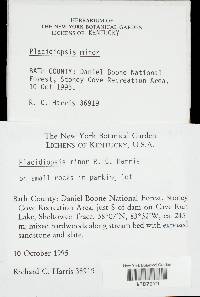 HERBARIUM OF
THE NEW YORK BOTANICAL GARDEN
LICHENS OF KENTUCKY
Placidiopsis minor
BATH COUNTY: Daniel Boone National
Forest, Stoney Cove Recreation Area,
10 Oct 1995.
R. C. Harris 36919
The New York Botanical Garden
LICHENS OF KENTUCKY, U.S.A.
Placidiopsis minor R. C. Harris
on small rocks in parking lot
Bath County: Daniel Boone National Forest, Stoney
Cove Recreation Area, just S of dam on Cave Run
Lake, Sheltowee Trace,
mixed hardwoods along stream bed with exposed
sandstone and
10 October 1995
Richard C. Harris 36919
NEW YORK
BOTANICAL
GARDEN